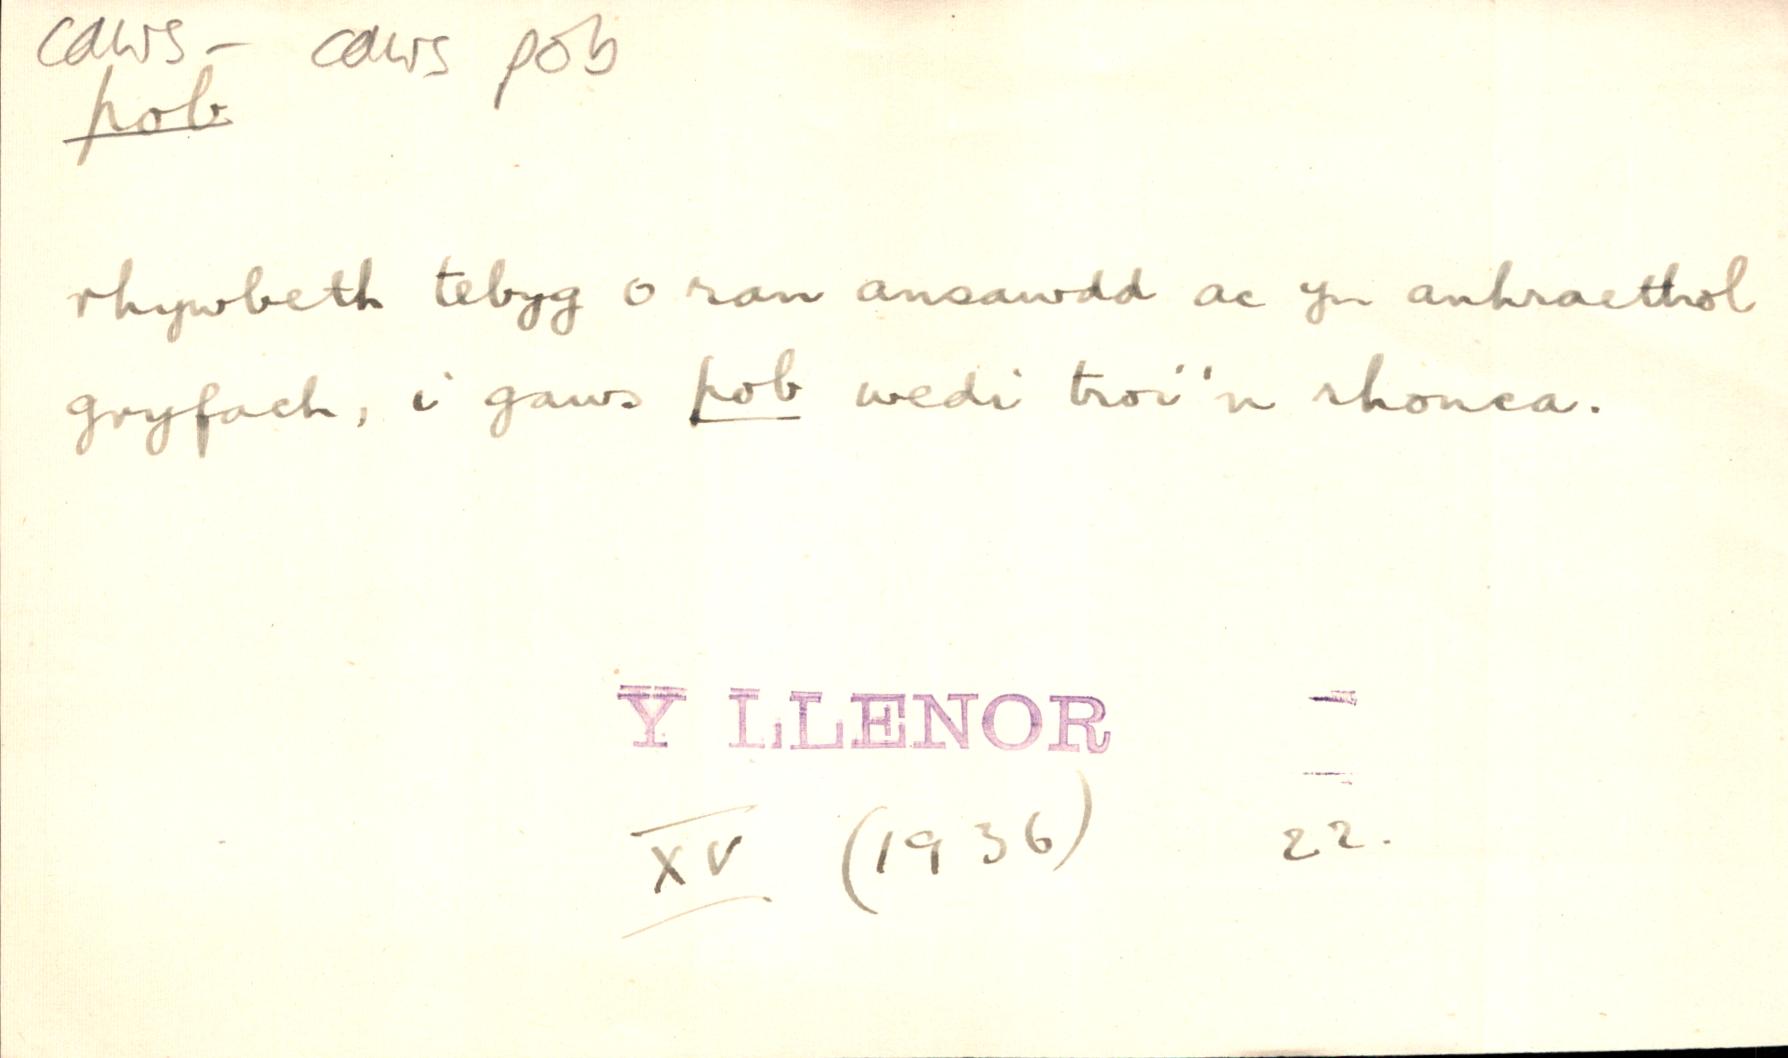 caws – caws pob
pob
rhywbeth tebyg o ran ansawdd ac yn anhraethol
gryfach, i gaws pob wedi troi'n rhonca.
Y LLENOR
XV (1936) 22.